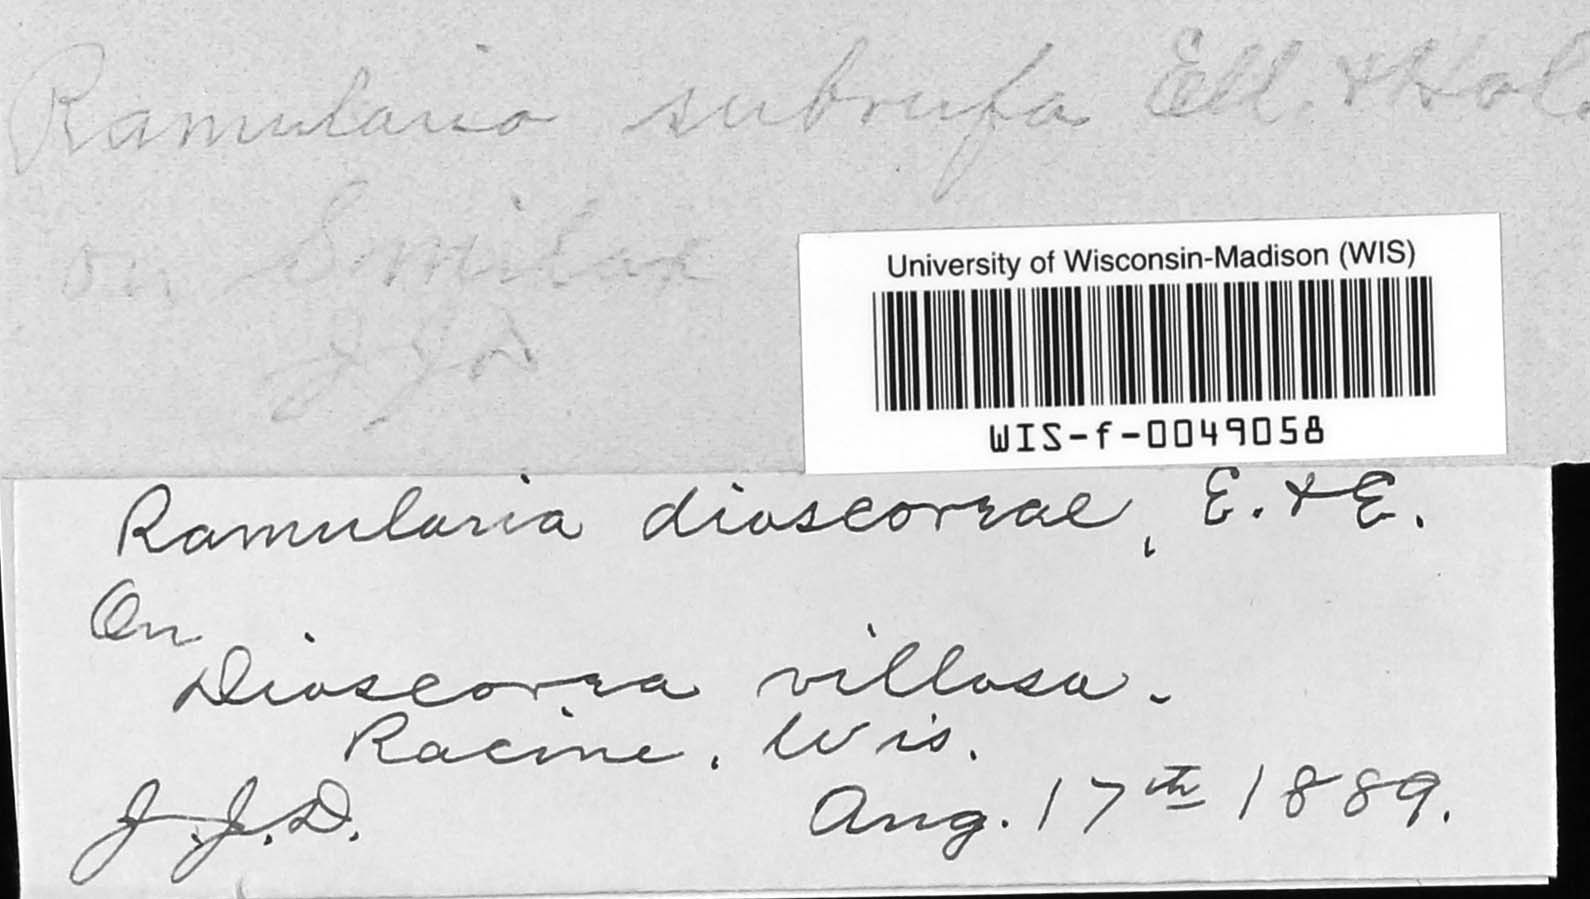 Ramularia subrufa Ell. & Hol.
on Smilax
JJD
University of Wisconsin-Madison (WIS)
WIS-f-0049058
Ramularia dioscoreae, E. & E.
On
Dioscorea villosa.
Racine, Wis.
J.J.D. Aug. 17th 1889.